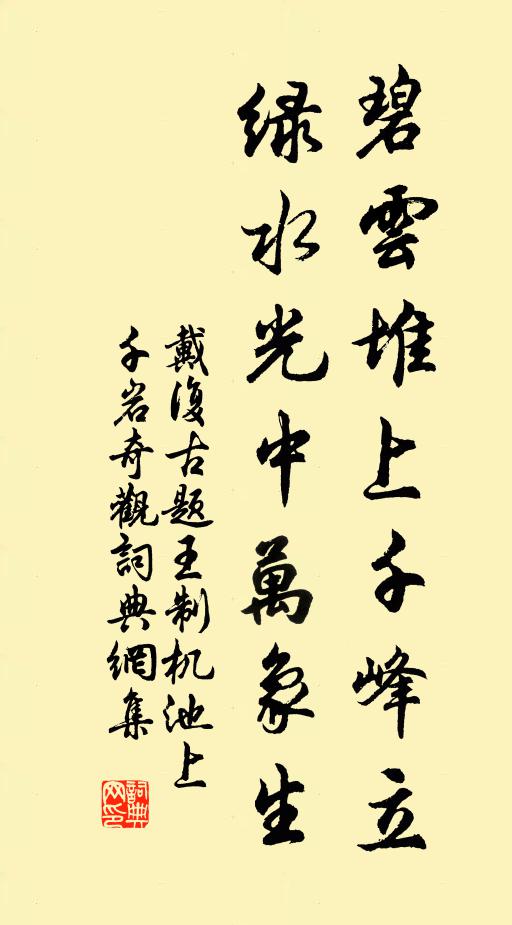 碧雲堆上千峰立
绿水光中萬象生
戴復古题王制机池上
千岩奇觀詞典網集
詞典
网印